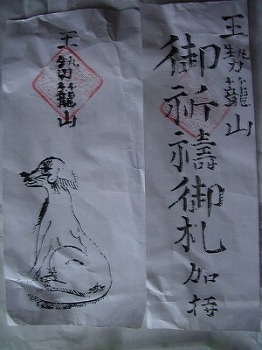 王勢籠山
御祈禱御札
加持
王勢籠山